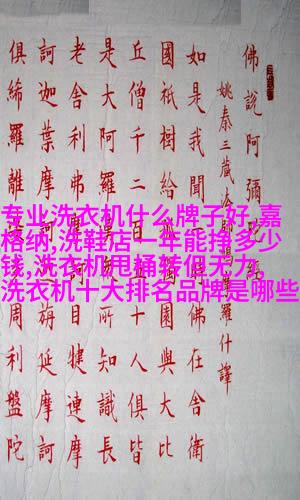 佛說阿彌陀經
姚秦三藏法師鳩摩羅什譯
如是我聞佛在舍衛
國祇樹給園與大比
丘僧千二十人俱皆
是大阿羅所知識長
老舍利弗目犍連摩
訶迦葉摩旃延摩訶
俱絺羅離周利盤陀
专业洗衣机什么牌子好,嘉
格纳,洗鞋店一年能挣多少
钱,洗衣机甩桶转但无力,
洗衣机十大排名品牌是哪些